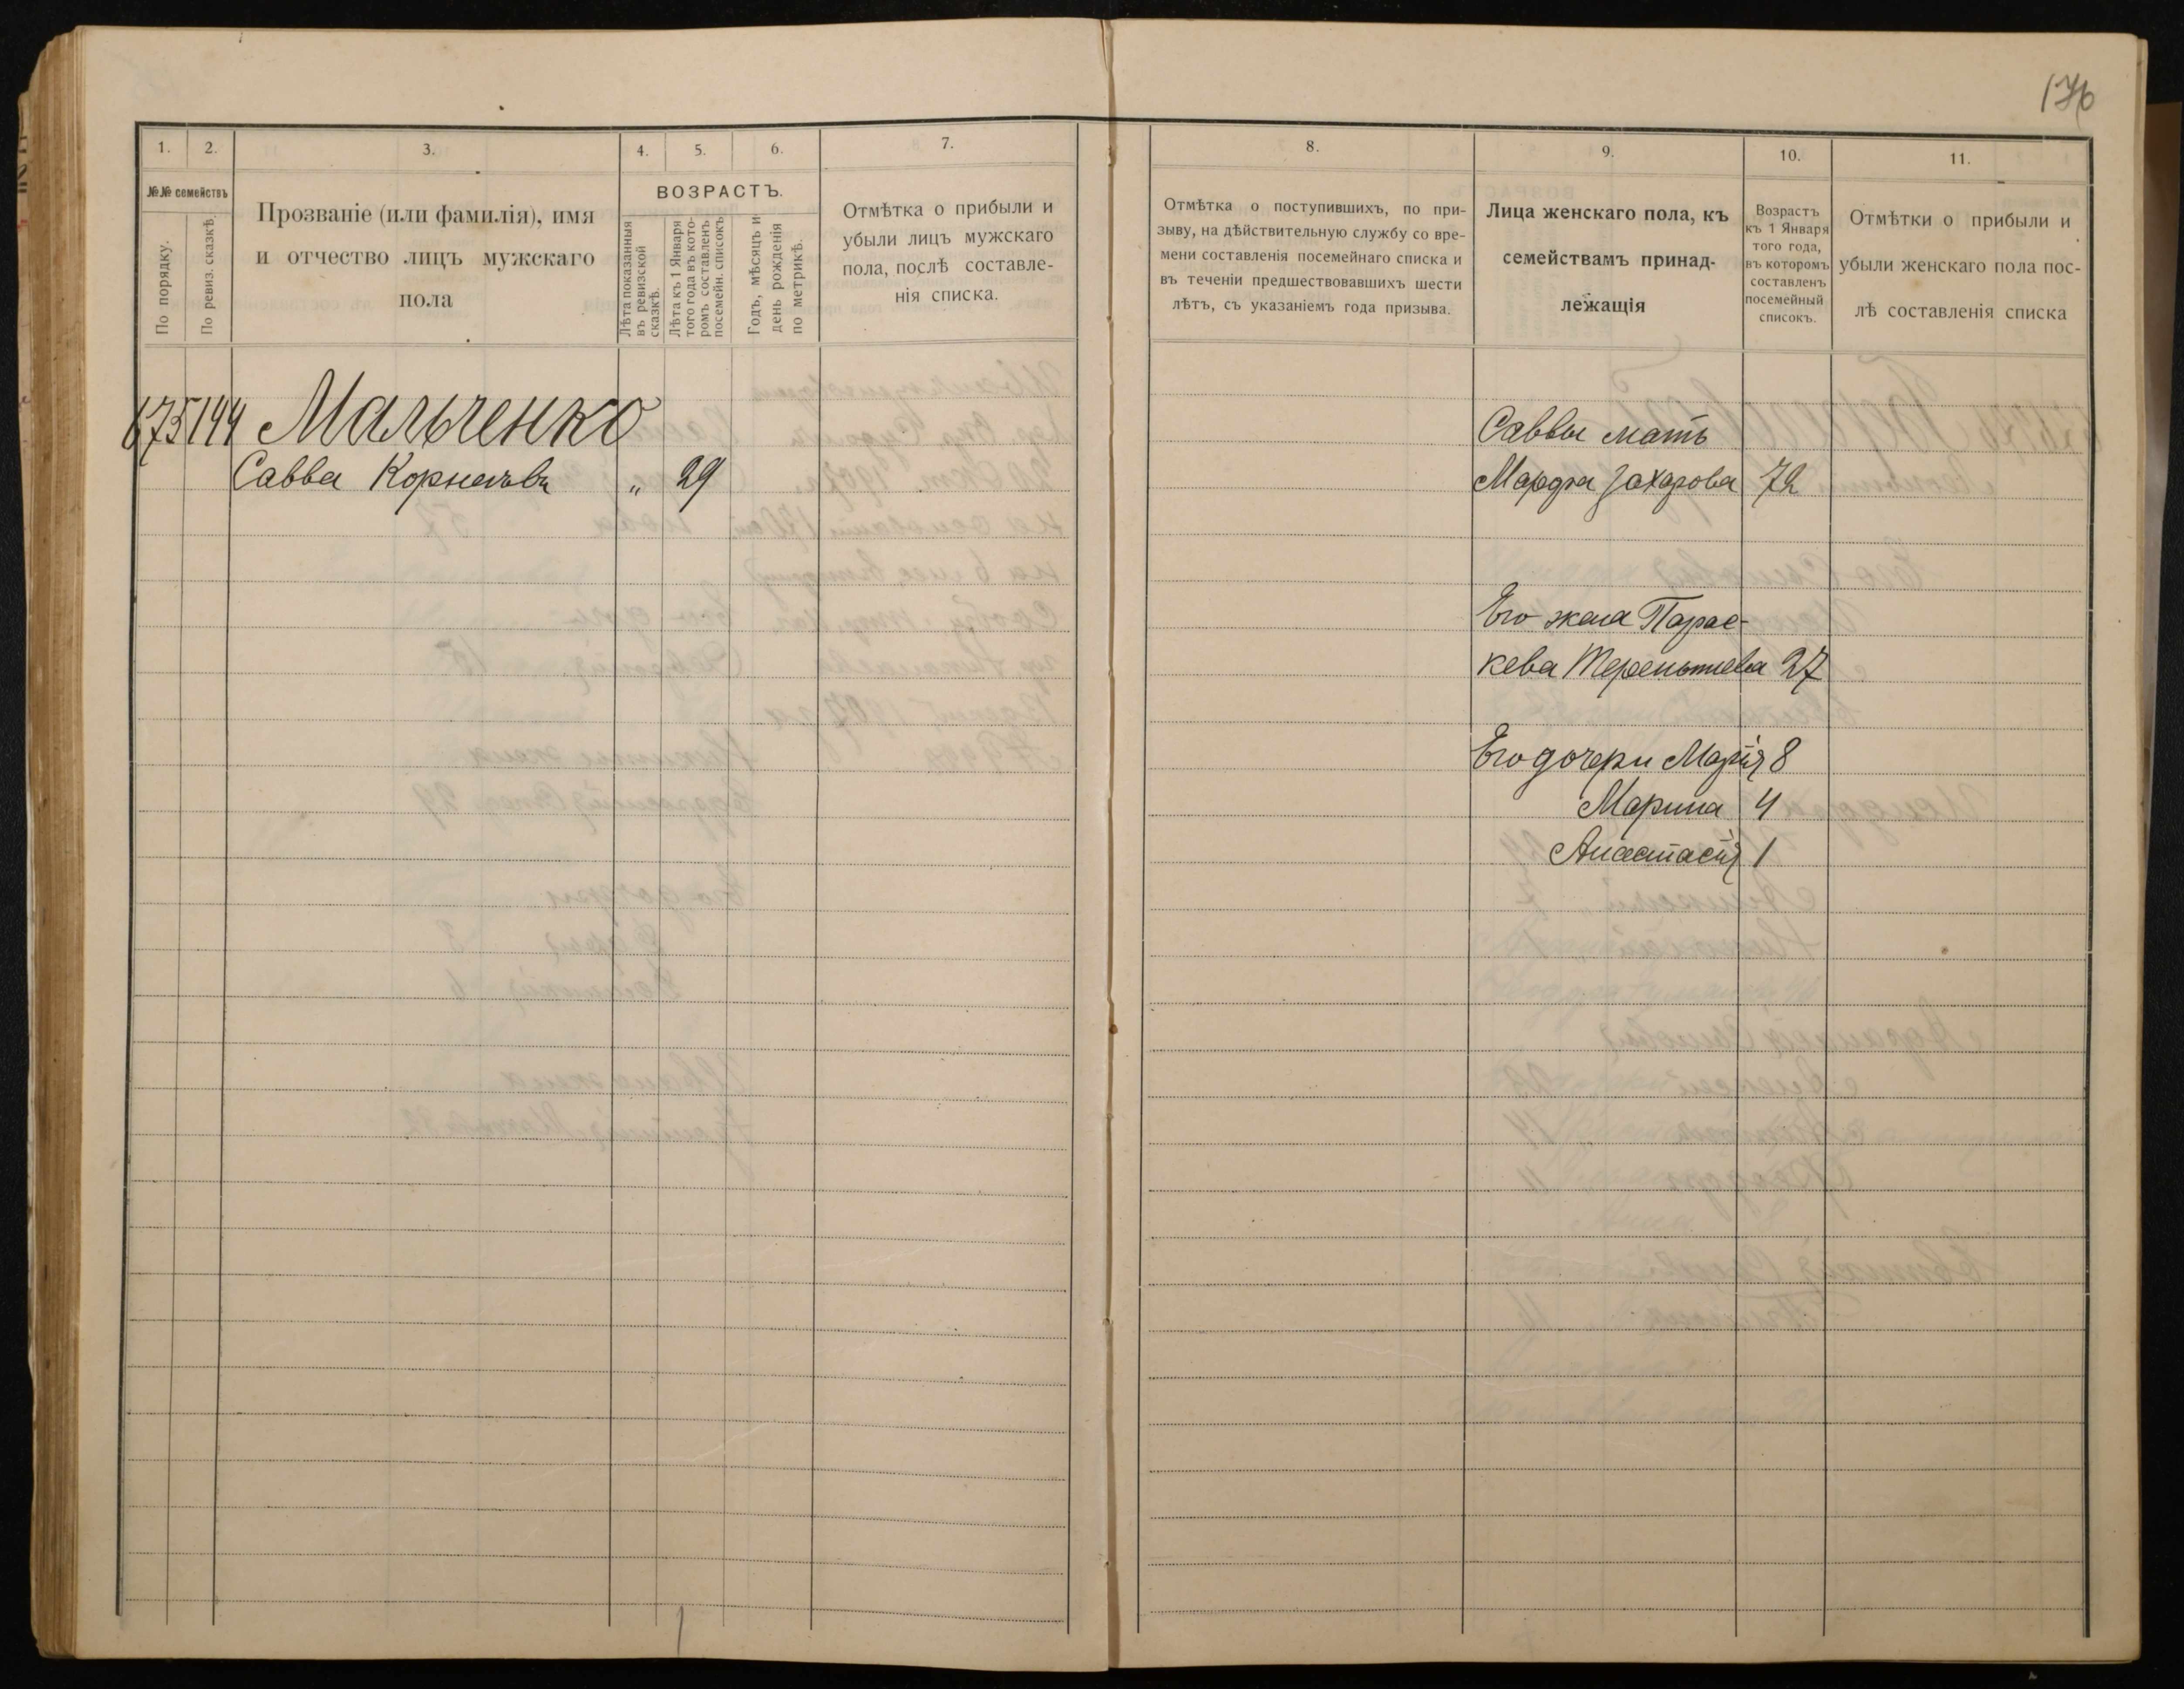 176
1.
2.
3.
4.
5.
6.
7.
№№ семействъ
По порядку.
По ревиз. сказкѣ.
Прозваніе (или фамилія), имя
и отчество лицъ мужскаго
пола
ВОЗРАСТЪ.
Лѣта показанныя
въ ревизской
сказкѣ.
Лѣта къ 1 Января
того года въ кото-
ромъ составленъ
посемейн. списокъ
Годъ, мѣсяцъ и
день рожденія
по метрикѣ.
Отмѣтка о прибыли и
убыли лицъ мужскаго
пола, послѣ составле-
нія списка.
675 144 Мальченко
Савва Корнеевъ „ 29
8.
9.
10.
11.
Отмѣтка о поступившихъ, по при-
зыву, на дѣйствительную службу со вре-
мени составленія посемейнаго списка и
въ теченіи предшествовавшихъ шести
лѣтъ, съ указаніемъ года призыва.
Лица женскаго пола, къ
семействамъ принад-
лежащія
Возрастъ
къ 1 Января
того года,
въ которомъ
составленъ
посемейный
списокъ.
Отмѣтки о прибыли и
убыли женскаго пола пос-
лѣ составленія списка
Саввы мать
Марфа Захарова 72
Его жена Парас-
кева Терентиева 27
Его дочери Марія 8
Марина 4
Анастасія 1